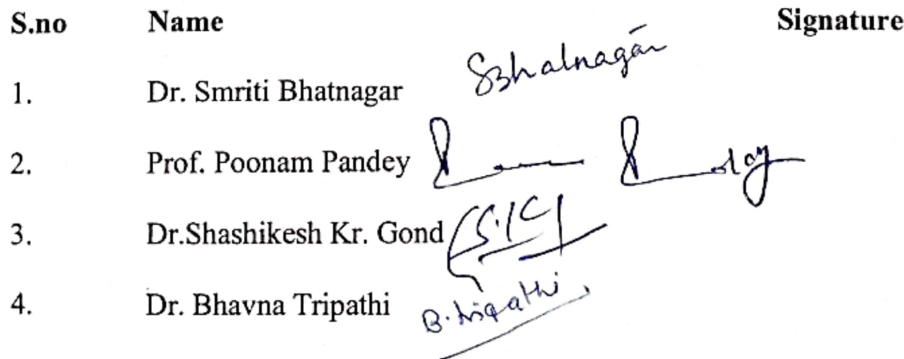 S.no Name Signature
1. Dr. Smriti Bhatnagar SBhatnagar
2. Prof. Poonam Pandey
3. Dr.Shashikesh Kr. Gond
4. Dr. Bhavna Tripathi B. Tripathi